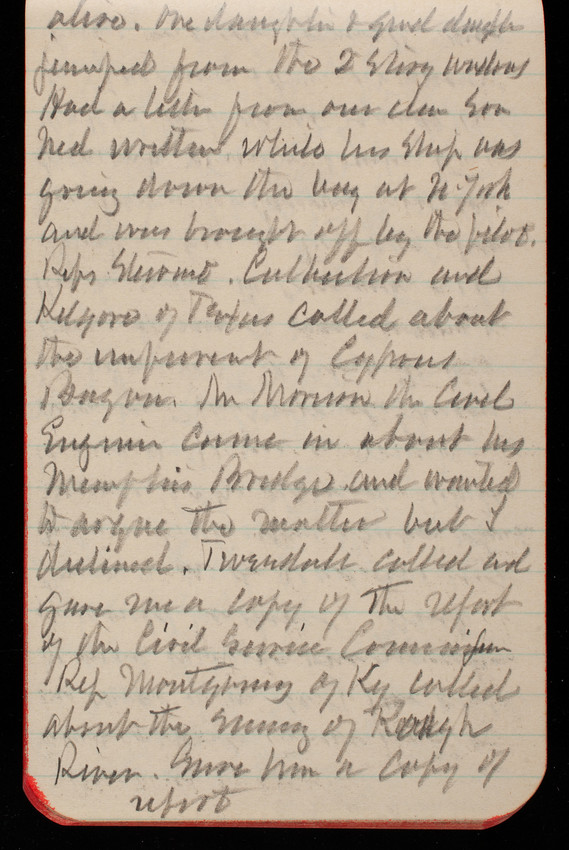 alive. One daughter & grand daughter
jumped from the 2 Story windows
Had a letter from our dear Son
Ned written while his Ship was
going down the bay at N-York
and was brought off by the pilot.
Reps Stewart. Culbertson and
Kilgore of Texas called about
the improvment of Cypress
Bayou. Mr Morison the Civil
Engineer came in about his
Memphis Bridge and wanted
to argue the matter but I
declined. Tweedale called and
gave me a copy of the report
of the Civil Service Commission
Rep Montgomery of Ky called
about the Survey of Rough
River. Gave him a copy of
report